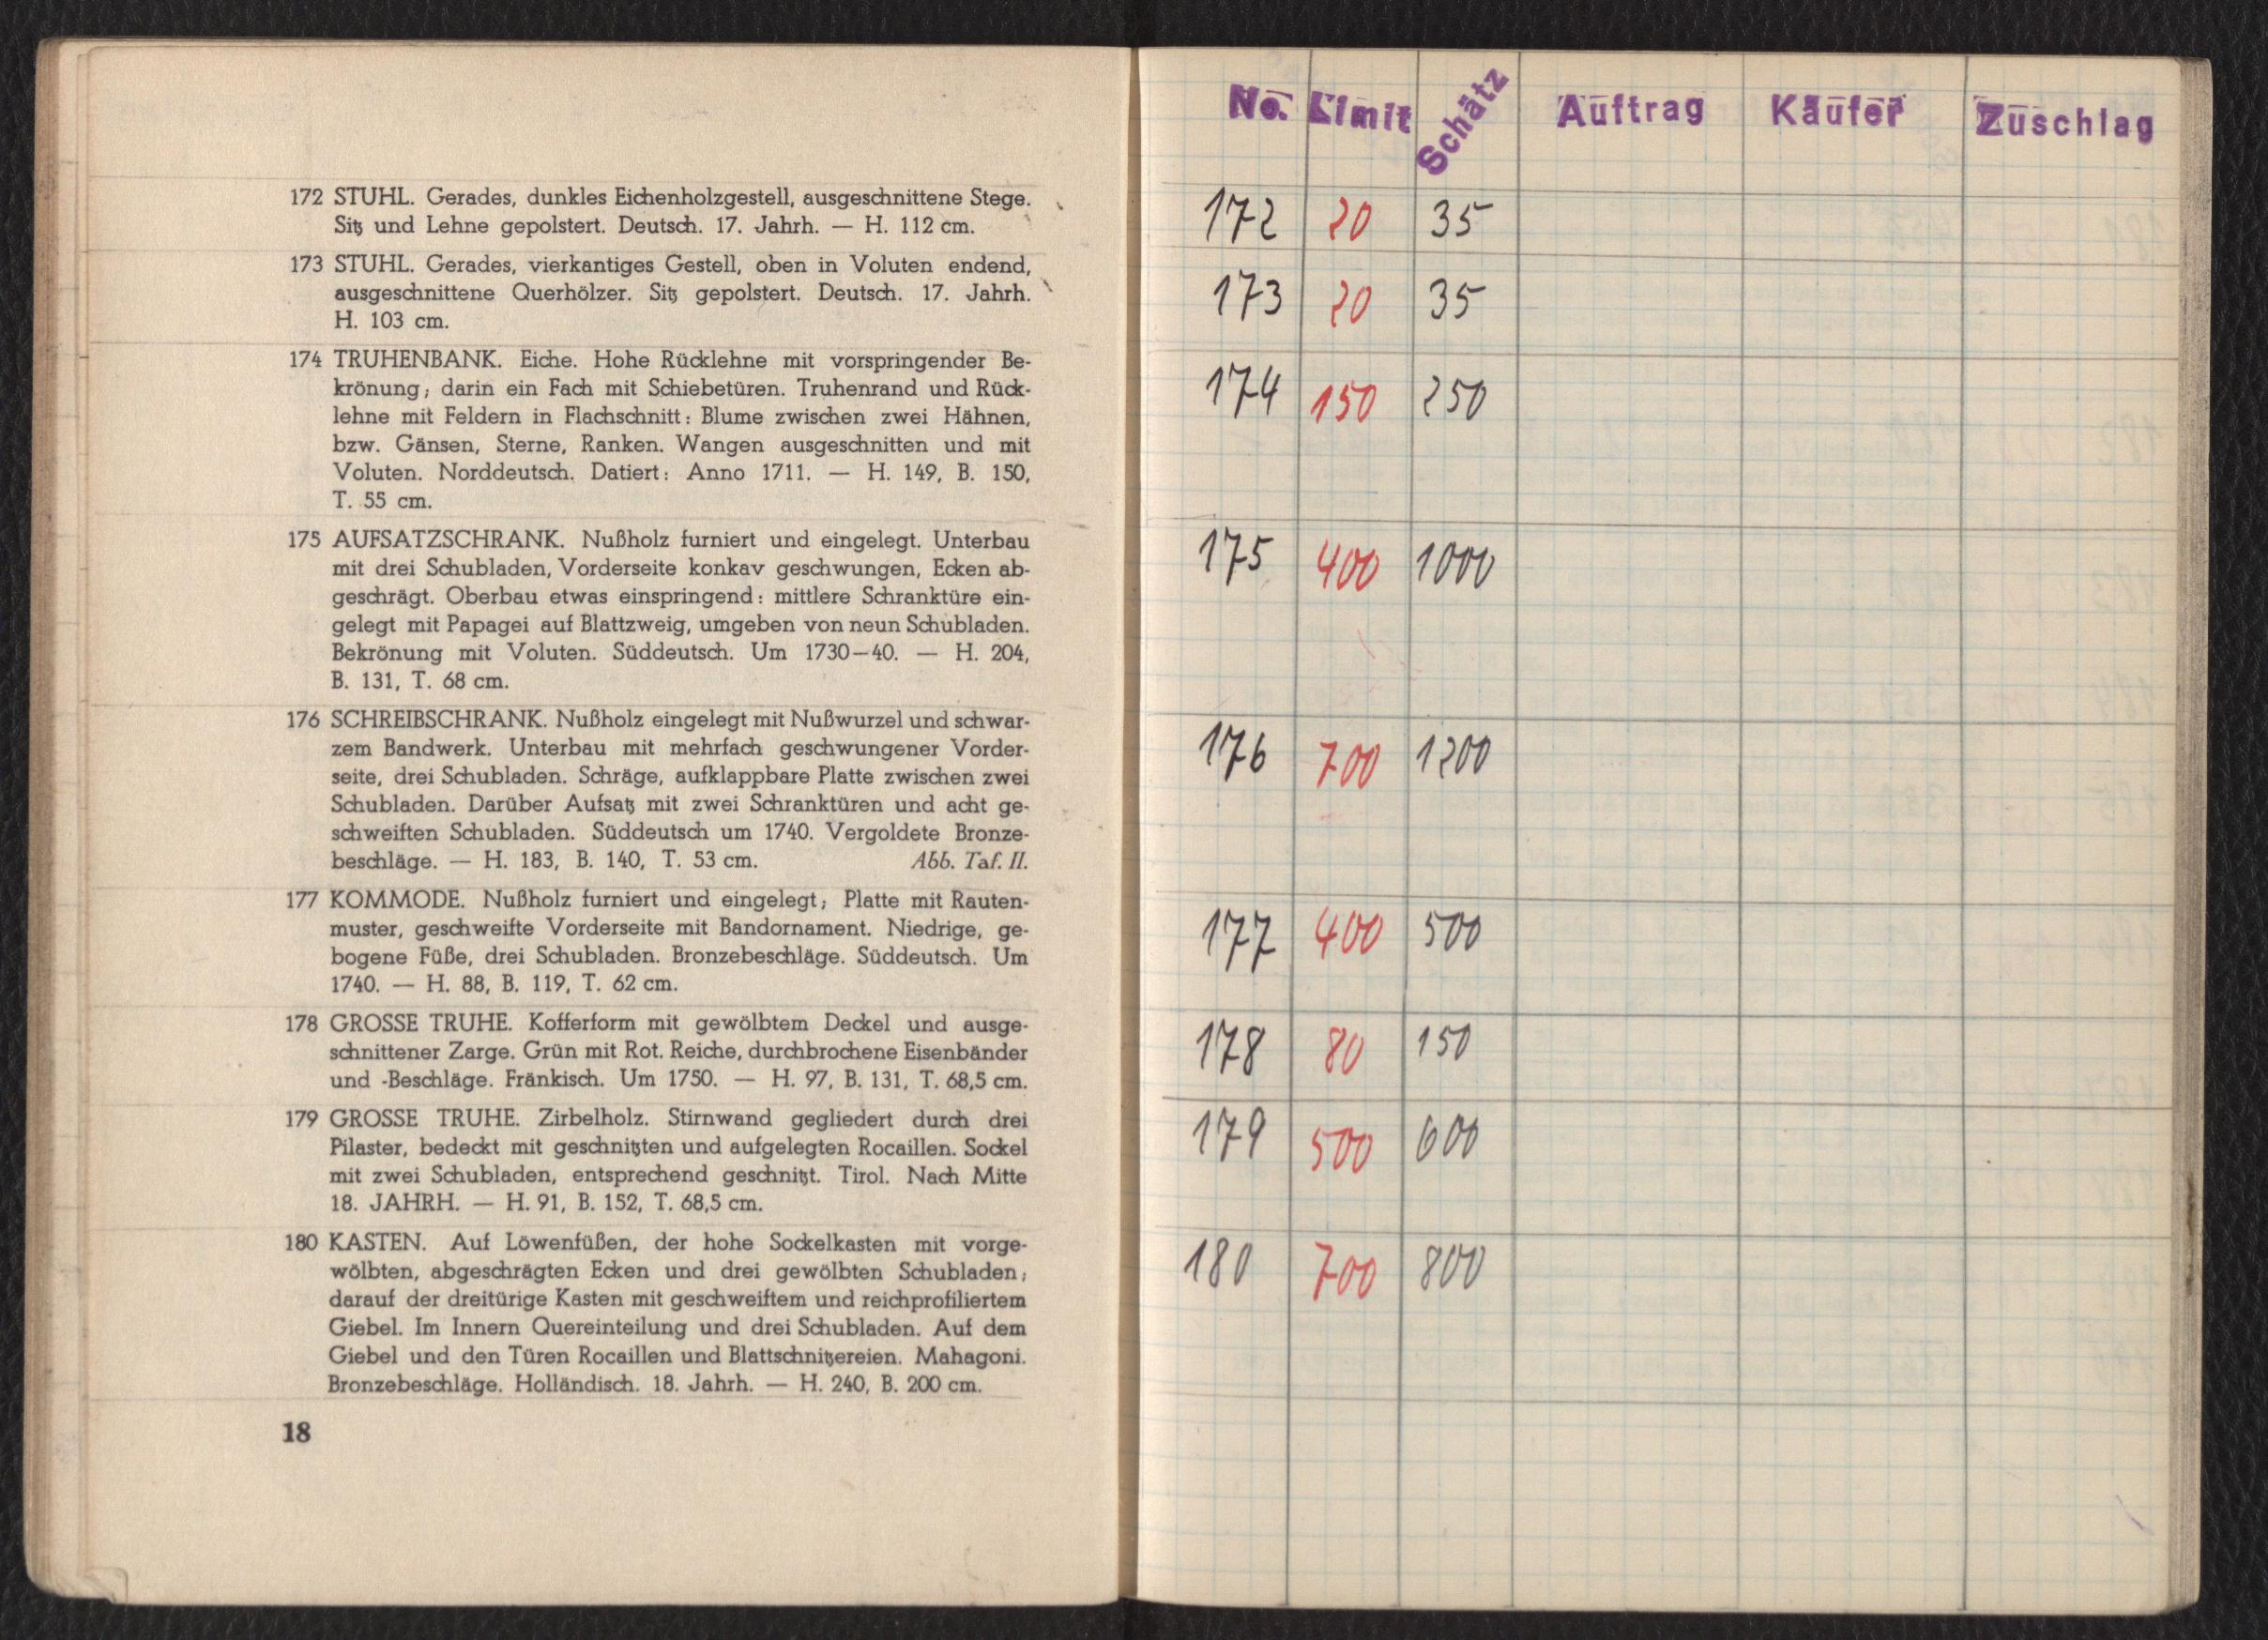 172 STUHL. Gerades, dunkles Eichenholzgestell, ausgeschnittene Stege.
Sitz und Lehne gepolstert. Deutsch. 17. Jahrh. — H. 112 cm.
173 STUHL. Gerades, vierkantiges Gestell, oben in Voluten endend,
ausgeschnittene Querhölzer. Sitz gepolstert. Deutsch. 17. Jahrh.
H. 103 cm.
174 TRUHENBANK. Eiche. Hohe Rücklehne mit vorspringender Be-
krönung; darin ein Fach mit Schiebetüren. Truhenrand und Rück-
lehne mit Feldern in Flachschnitt: Blume zwischen zwei Hähnen,
bzw. Gänsen, Sterne, Ranken. Wangen ausgeschnitten und mit
Voluten. Norddeutsch. Datiert: Anno 1711. — H. 149, B. 150,
T. 55 cm.
175 AUFSATZSCHRANK. Nußholz furniert und eingelegt. Unterbau
mit drei Schubladen, Vorderseite konkav geschwungen, Ecken ab-
geschrägt. Oberbau etwas einspringend: mittlere Schranktüre ein-
gelegt mit Papagei auf Blattzweig, umgeben von neun Schubladen.
Bekrönung mit Voluten. Süddeutsch. Um 1730—40. — H. 204,
B. 131, T. 68 cm.
176 SCHREIBSCHRANK. Nußholz eingelegt mit Nußwurzel und schwar-
zem Bandwerk. Unterbau mit mehrfach geschwungener Vorder-
seite, drei Schubladen. Schräge, aufklappbare Platte zwischen zwei
Schubladen. Darüber Aufsatz mit zwei Schranktüren und acht ge-
schweiften Schubladen. Süddeutsch um 1740. Vergoldete Bronze-
beschläge. — H. 183, B. 140, T. 53 cm. Abb. Taf. II.
177 KOMMODE. Nußholz furniert und eingelegt; Platte mit Rauten-
muster, geschweifte Vorderseite mit Bandornament. Niedrige, ge-
bogene Füße, drei Schubladen. Bronzebeschläge. Süddeutsch. Um
1740. — H. 88, B. 119, T. 62 cm.
178 GROSSE TRUHE. Kofferform mit gewölbtem Deckel und ausge-
schnittener Zarge. Grün mit Rot. Reiche, durchbrochene Eisenbänder
und -Beschläge. Fränkisch. Um 1750. — H. 97, B. 131, T. 68,5 cm.
179 GROSSE TRUHE. Zirbelholz. Stirnwand gegliedert durch drei
Pilaster, bedeckt mit geschnitzten und aufgelegten Rocaillen. Sockel
mit zwei Schubladen, entsprechend geschnitzt. Tirol. Nach Mitte
18. JAHRH. — H. 91, B. 152, T. 68,5 cm.
180 KASTEN. Auf Löwenfüßen, der hohe Sockelkasten mit vorge-
wölbten, abgeschrägten Ecken und drei gewölbten Schubladen;
darauf der dreitürige Kasten mit geschweiftem und reichprofiliertem
Giebel. Im Innern Quereinteilung und drei Schubladen. Auf dem
Giebel und den Türen Rocaillen und Blattschnitzereien. Mahagoni.
Bronzebeschläge. Holländisch. 18. Jahrh. — H. 240, B. 200 cm.
18
No. Limit Schätz Auftrag Käufer Zuschlag
172 20 35
173 20 35
174 150 250
175 400 1000
176 700 1200
177 400 500
178 80 150
179 500 600
180 700 800